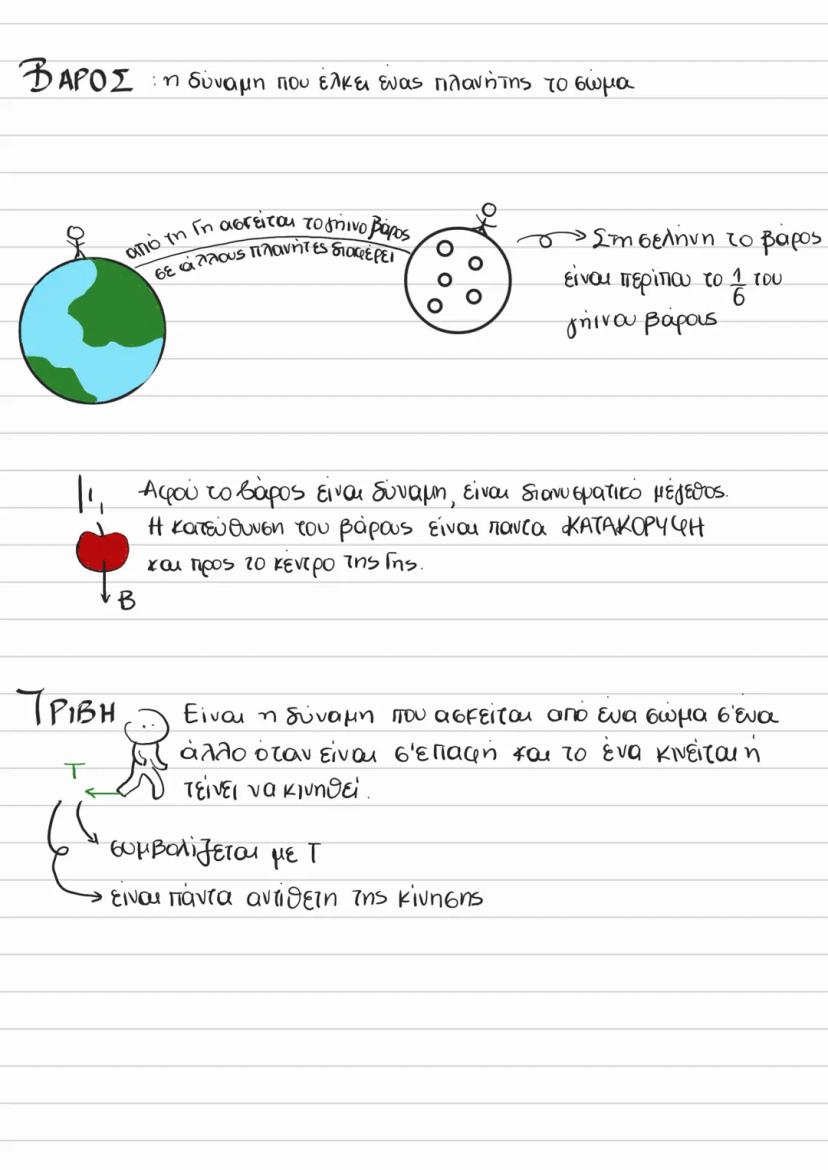 ΒΑΡΟΣ : η δύναμη που έλκει ένας πλανήτης το σώμα
από τη Γη ασκείται το γήινο βάρος
σε άλλους πλανήτες διαφέρει
Στη σελήνη το βάρος
είναι περίπου το 1/6 του
γήινου βάρους
Αφού το βάρος είναι δύναμη, είναι διανυσματικό μέγεθος.
Η κατεύθυνση του βάρους είναι παντα ΚΑΤΑΚΟΡΥΦΗ
και προς το κέντρο της Γης.
Β
ΤΡΙΒΗ Είναι η δύναμη που ασκείται από ένα σώμα σ'ένα
άλλο όταν είναι σ'επαφή και το ένα κινείται ή
τείνει να κινηθεί.
Τ
συμβολίζεται με Τ
είναι πάντα αντίθετη της κίνησης